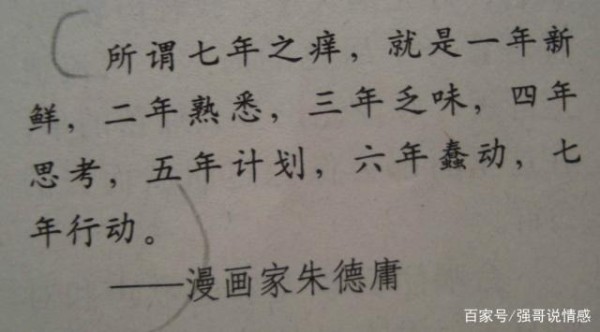 所谓七年之痒，就是一年新
鲜，二年熟悉，三年乏味，四年
思考，五年计划，六年蠢动，七
年行动。
——漫画家朱德庸
百家号/强哥说情感